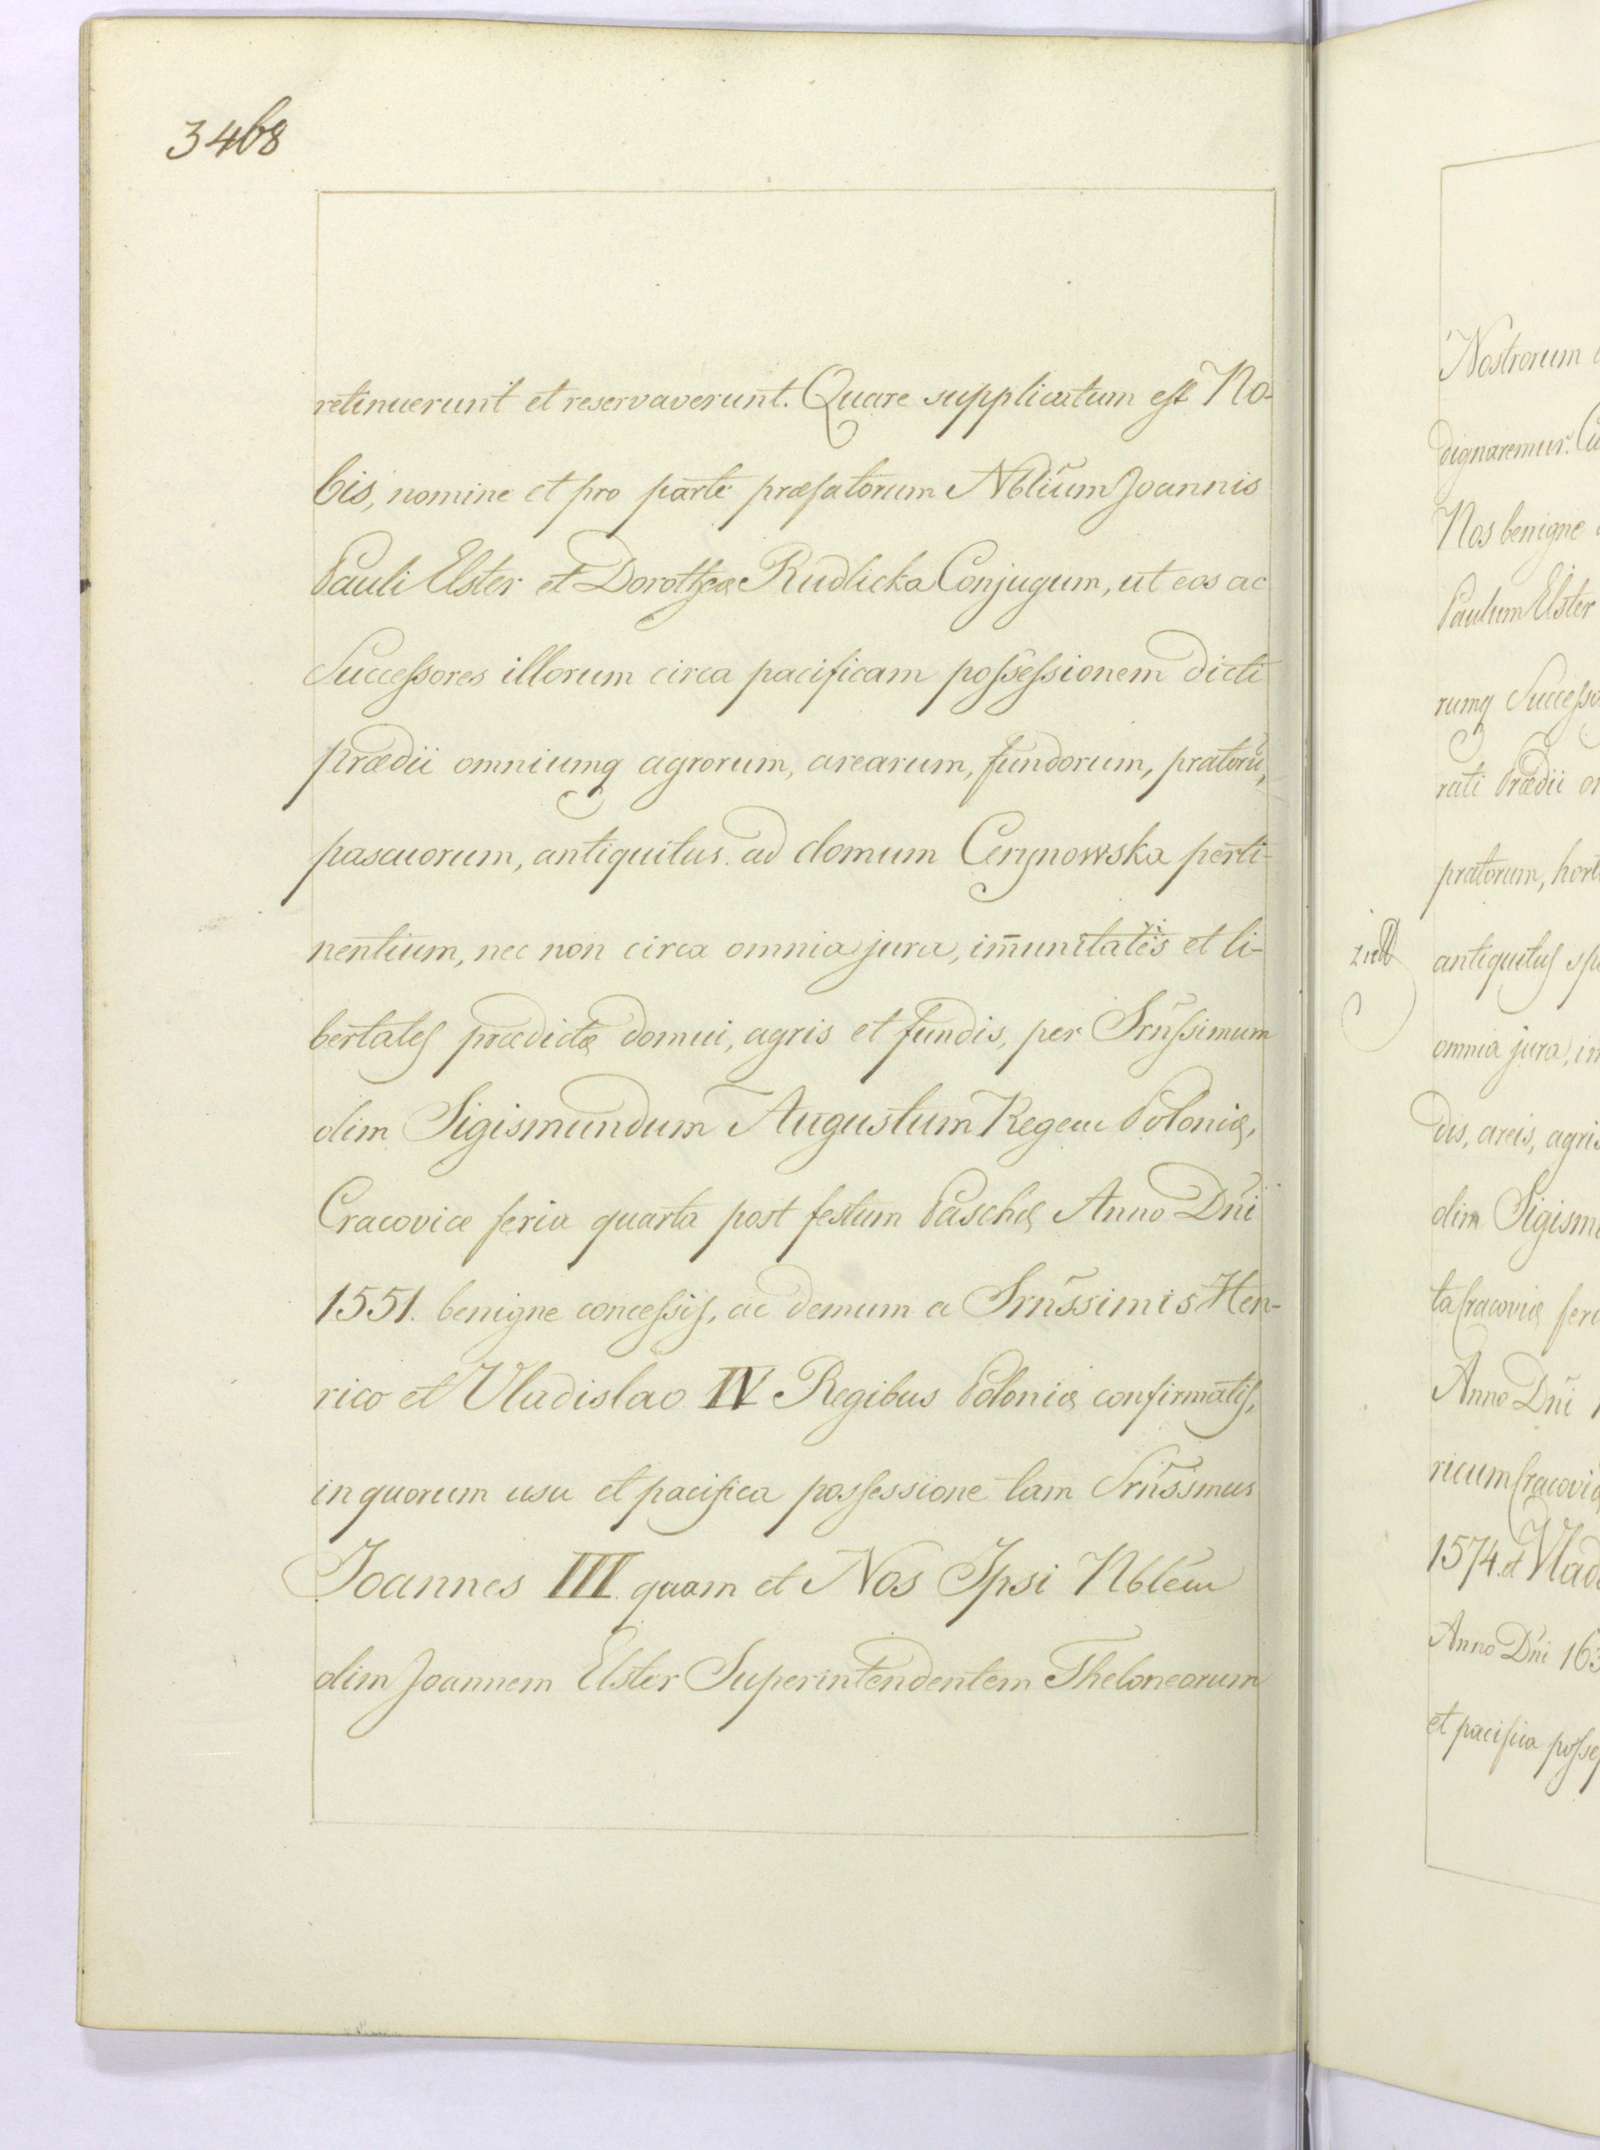 3468
retinuerunt et reservaverunt. Quare supplicatum est No-
bis, nomine et pro parte præfatorum Nbliūm Joannis
Pauli Elster et Dorotheæ Rudlicka Conjugum, ut eos ac
Successores illorum circa pacificam possessionem dicti
prædii omniumq agrorum, arearum, fundorum, pratorū,
pascuorum, antiquitus ad domum Cerynowska perti-
nentium, nec non circa omnia jura, im̄unitates et li-
bertates prædictæ domui, agris et fundis, per Srn̄ssimum
olim Sigismundum Augustum Regem Poloniæ,
Cracoviæ feria quarta post festum Paschæ Anno Dn̄i
1551. benigne concessis, ac demum a Srn̄ssimis Hen-
rico et Vladislao IV Regibus Poloniæ confirmatis,
in quorum usu et pacifica possessione tam Srn̄ssmus
Joannes III quam et Nos Ipsi Nblēm
olim Joannem Elster Superintendentem Thelonearum
Nostrorum
dignaremur.
Nos benigne
Paulum Elster
rumq Success
rati Prædii
pratorum, hort
antiquitus
omnia jura,
dis, areis, agris
olim Sigism
ta Cracoviæ fer
Anno Dn̄i
ricum Cracoviæ
1574. et Vlad
Anno Dni 163
et pacifica posse